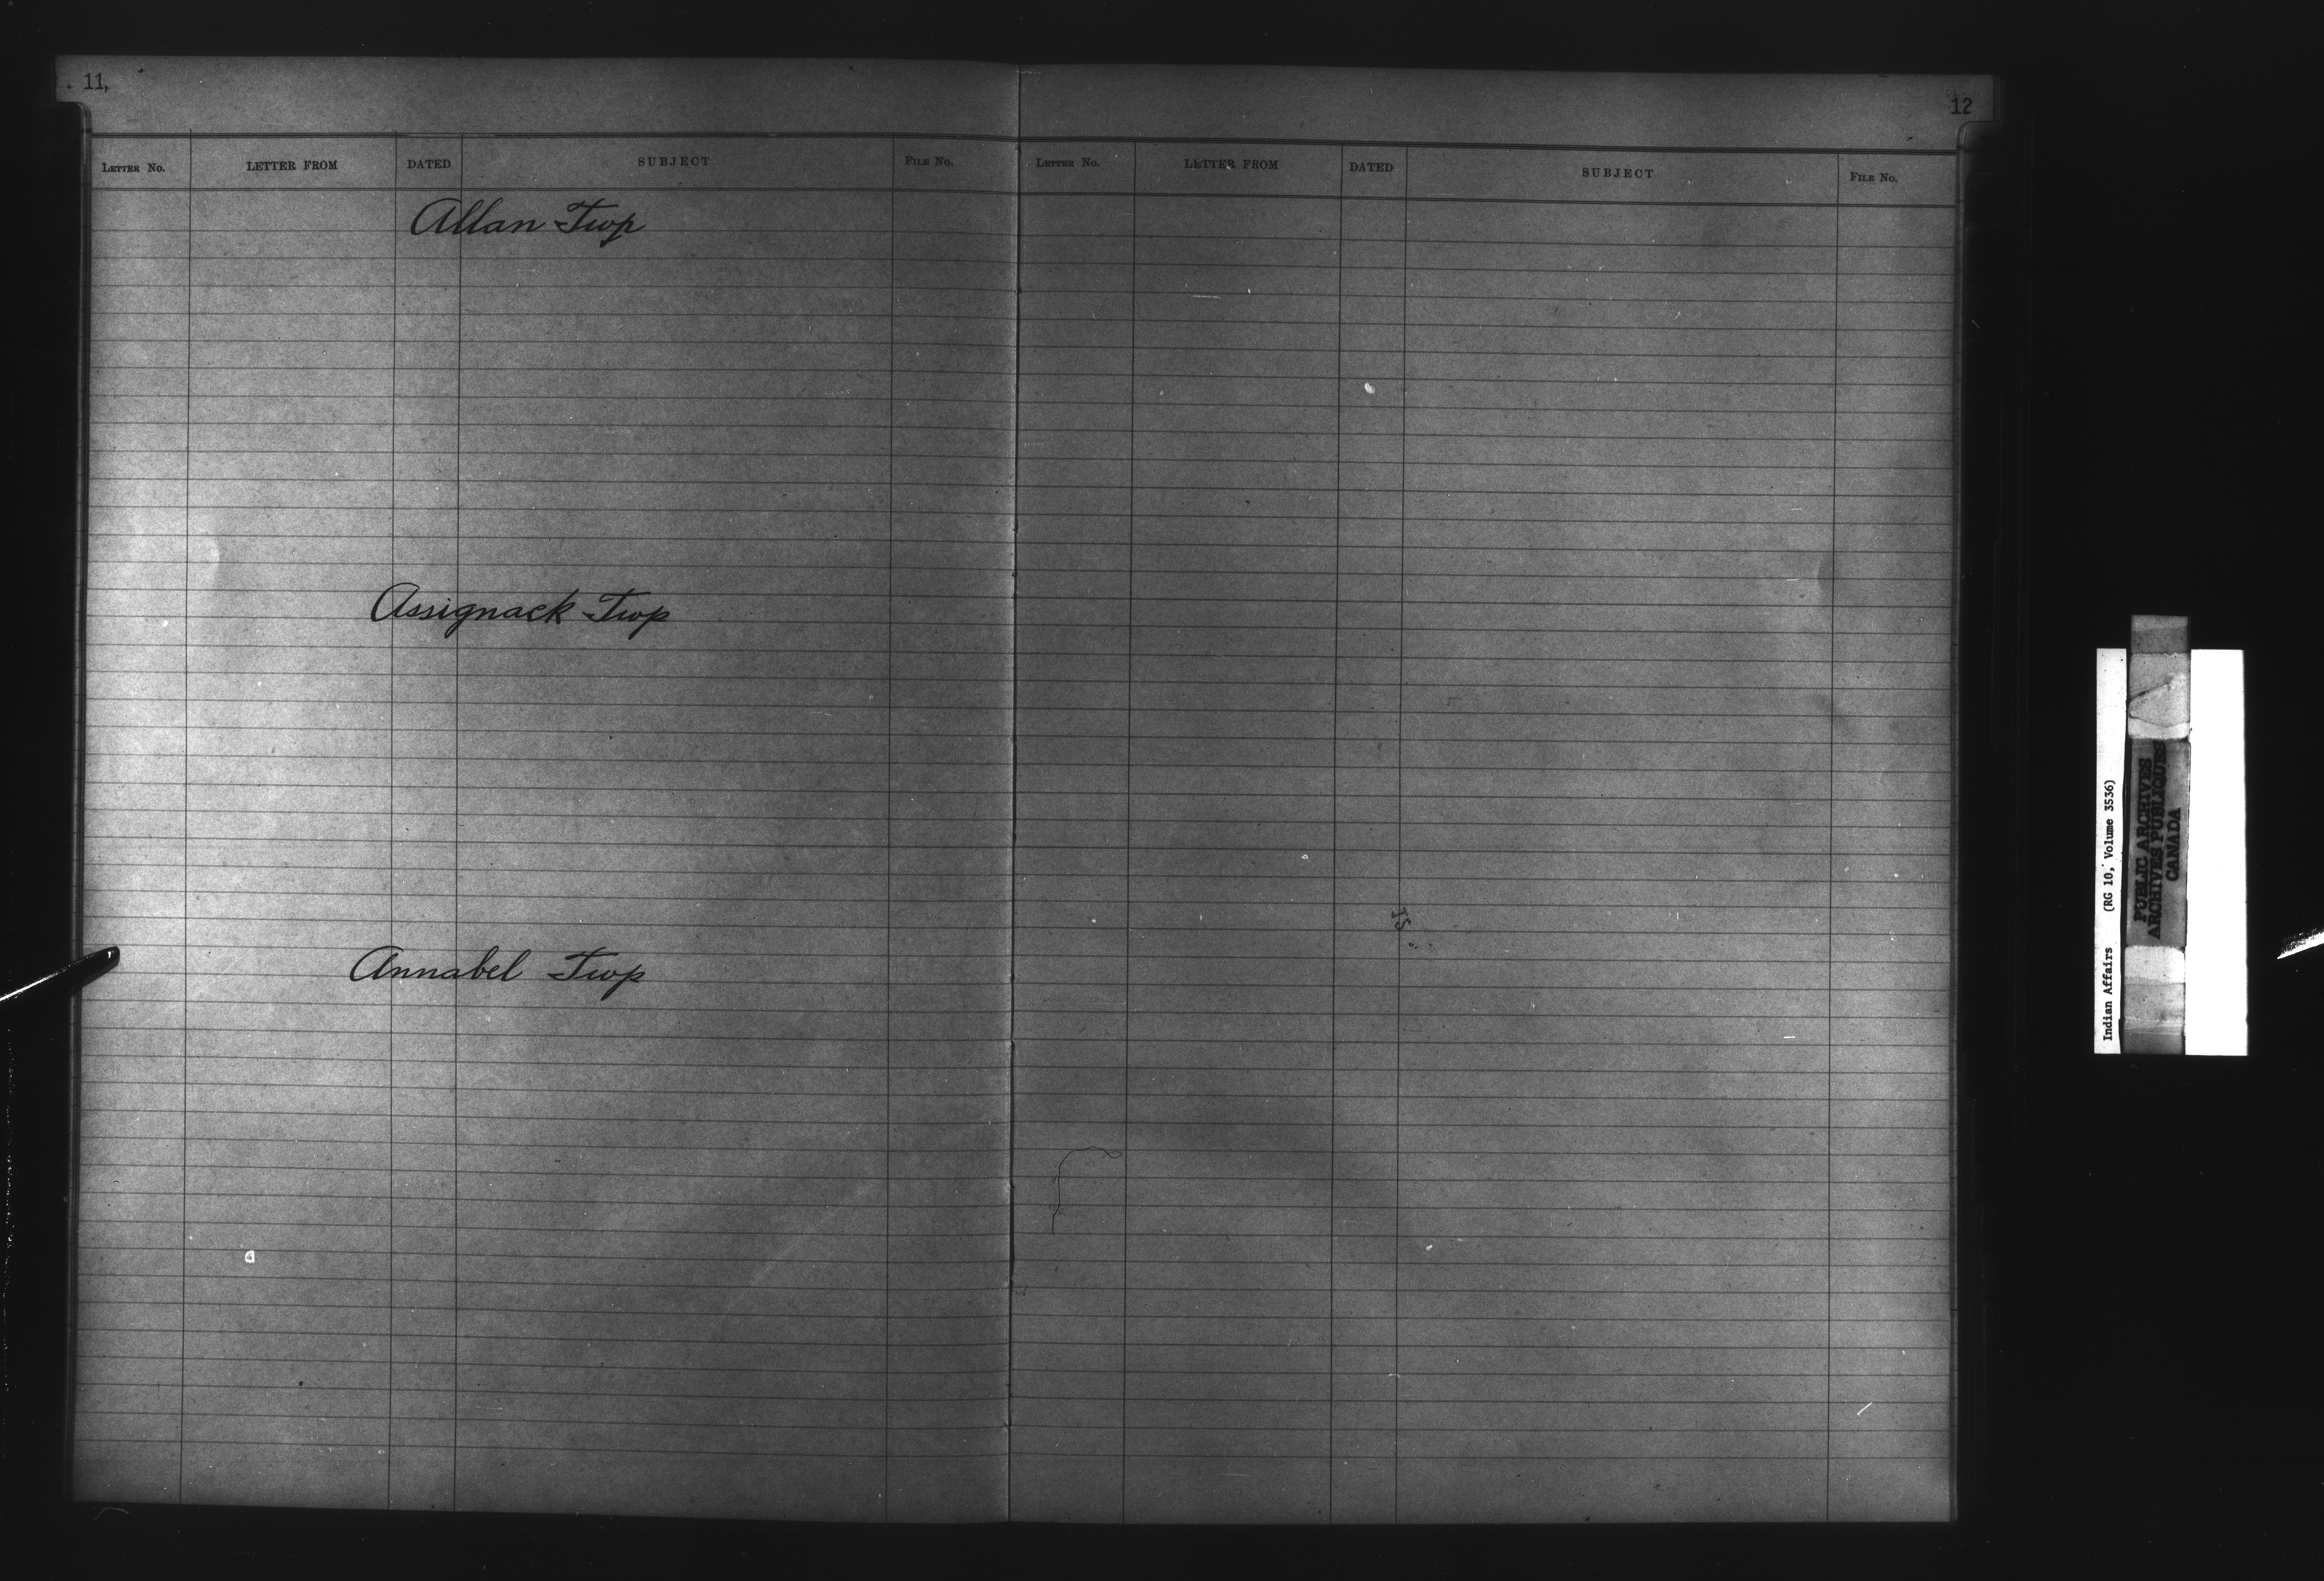 11,
LETTER No. LETTER FROM DATED SUBJECT FILE No.
Allan Twp
Assignack Twp
Annabel Twp
12
LETTER No. LETTER FROM DATED SUBJECT FILE No.
Indian Affairs (RG 10, Volume 3536)
PUBLIC ARCHIVES
ARCHIVES PUBLIQUES
CANADA